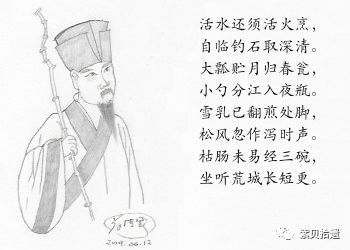 活水还须活火烹，
自临钓石取深清。
大瓢贮月归春瓮，
小勺分江入夜瓶。
雪乳已翻煎处脚，
松风忽作泻时声。
枯肠未易经三碗，
坐听荒城长短更。
2019.06.12
紫贝拾遗